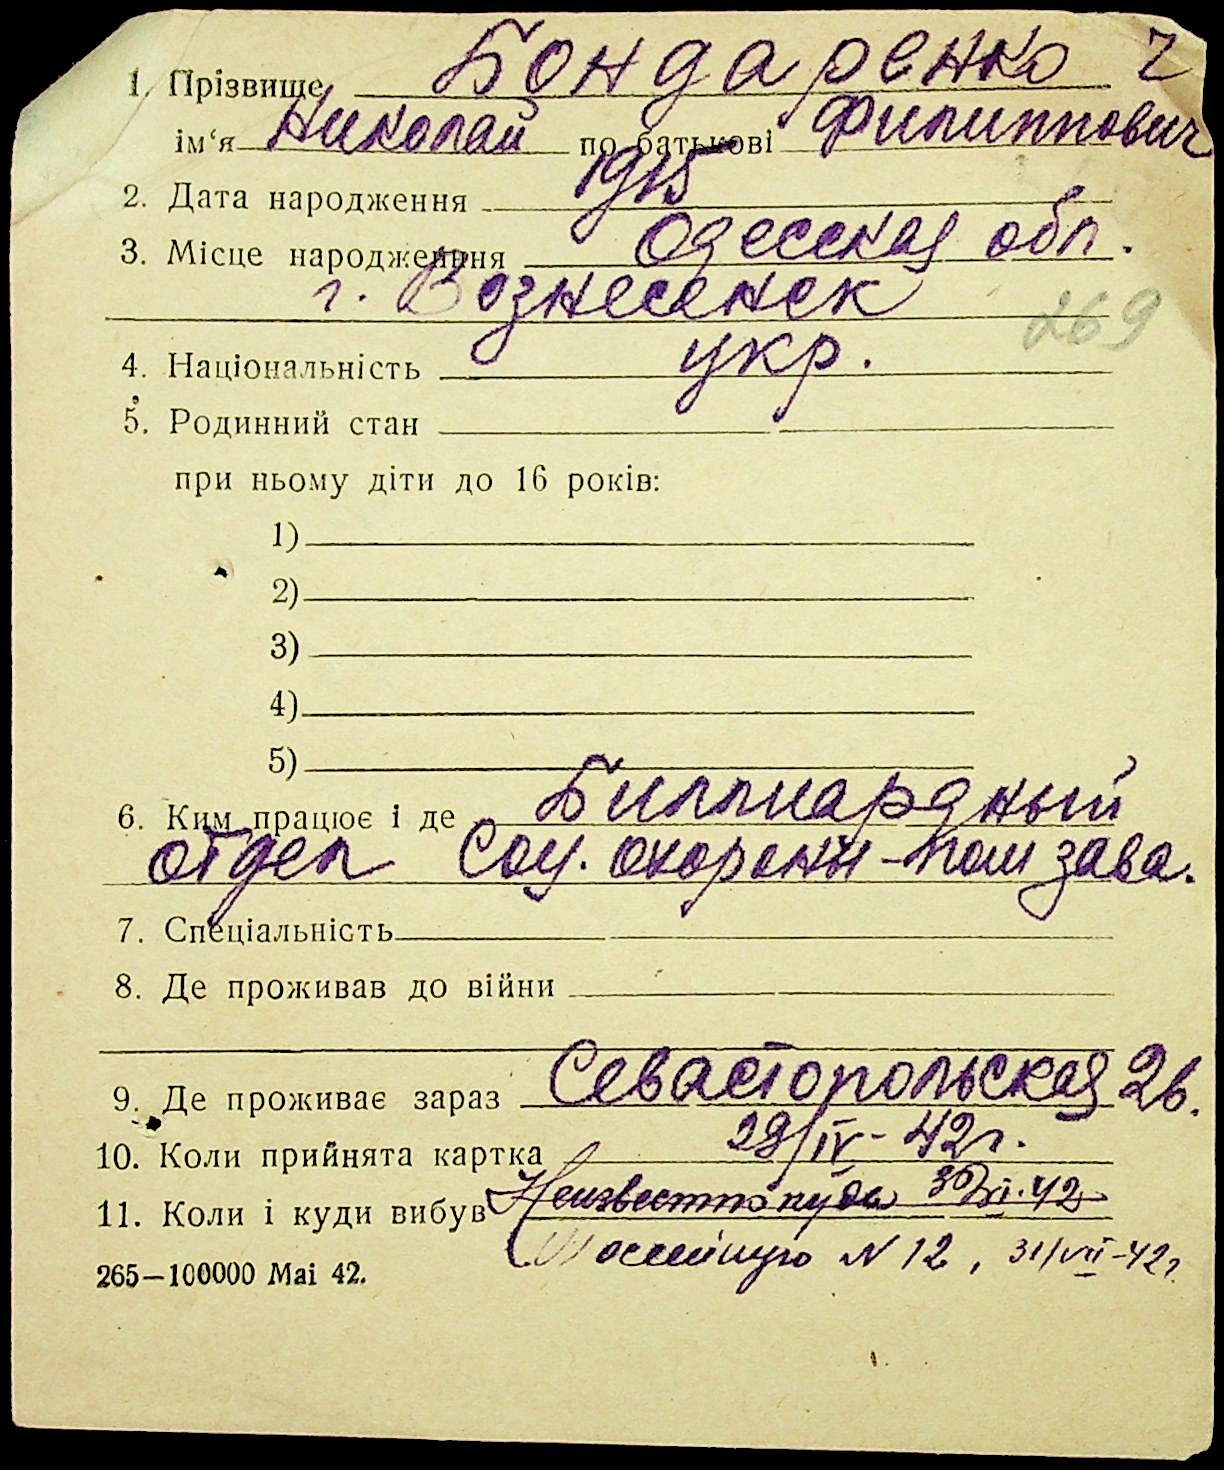 1. Прізвище Бондаренко ч
ім‘я Николай по батькові Филиппович
2. Дата народження 1915
3. Місце народженння Одесская обл.
г. Вознесенск
269
4. Національність укр.
5. Родинний стан
при ньому діти до 16 років:
1)
2)
3)
4)
5)
6. Ким працює і де Биллиардный
отдел Соц. охорены-
7. Спеціальність
8. Де проживав до війни
9. Де проживає зараз Севастопольская 26.
10. Коли прийнята картка 29/IV-42г.
11. Коли і куди вибув Неизвестно куда 42
N 12, 31/VII-42г.
265—100000 Mai 42.